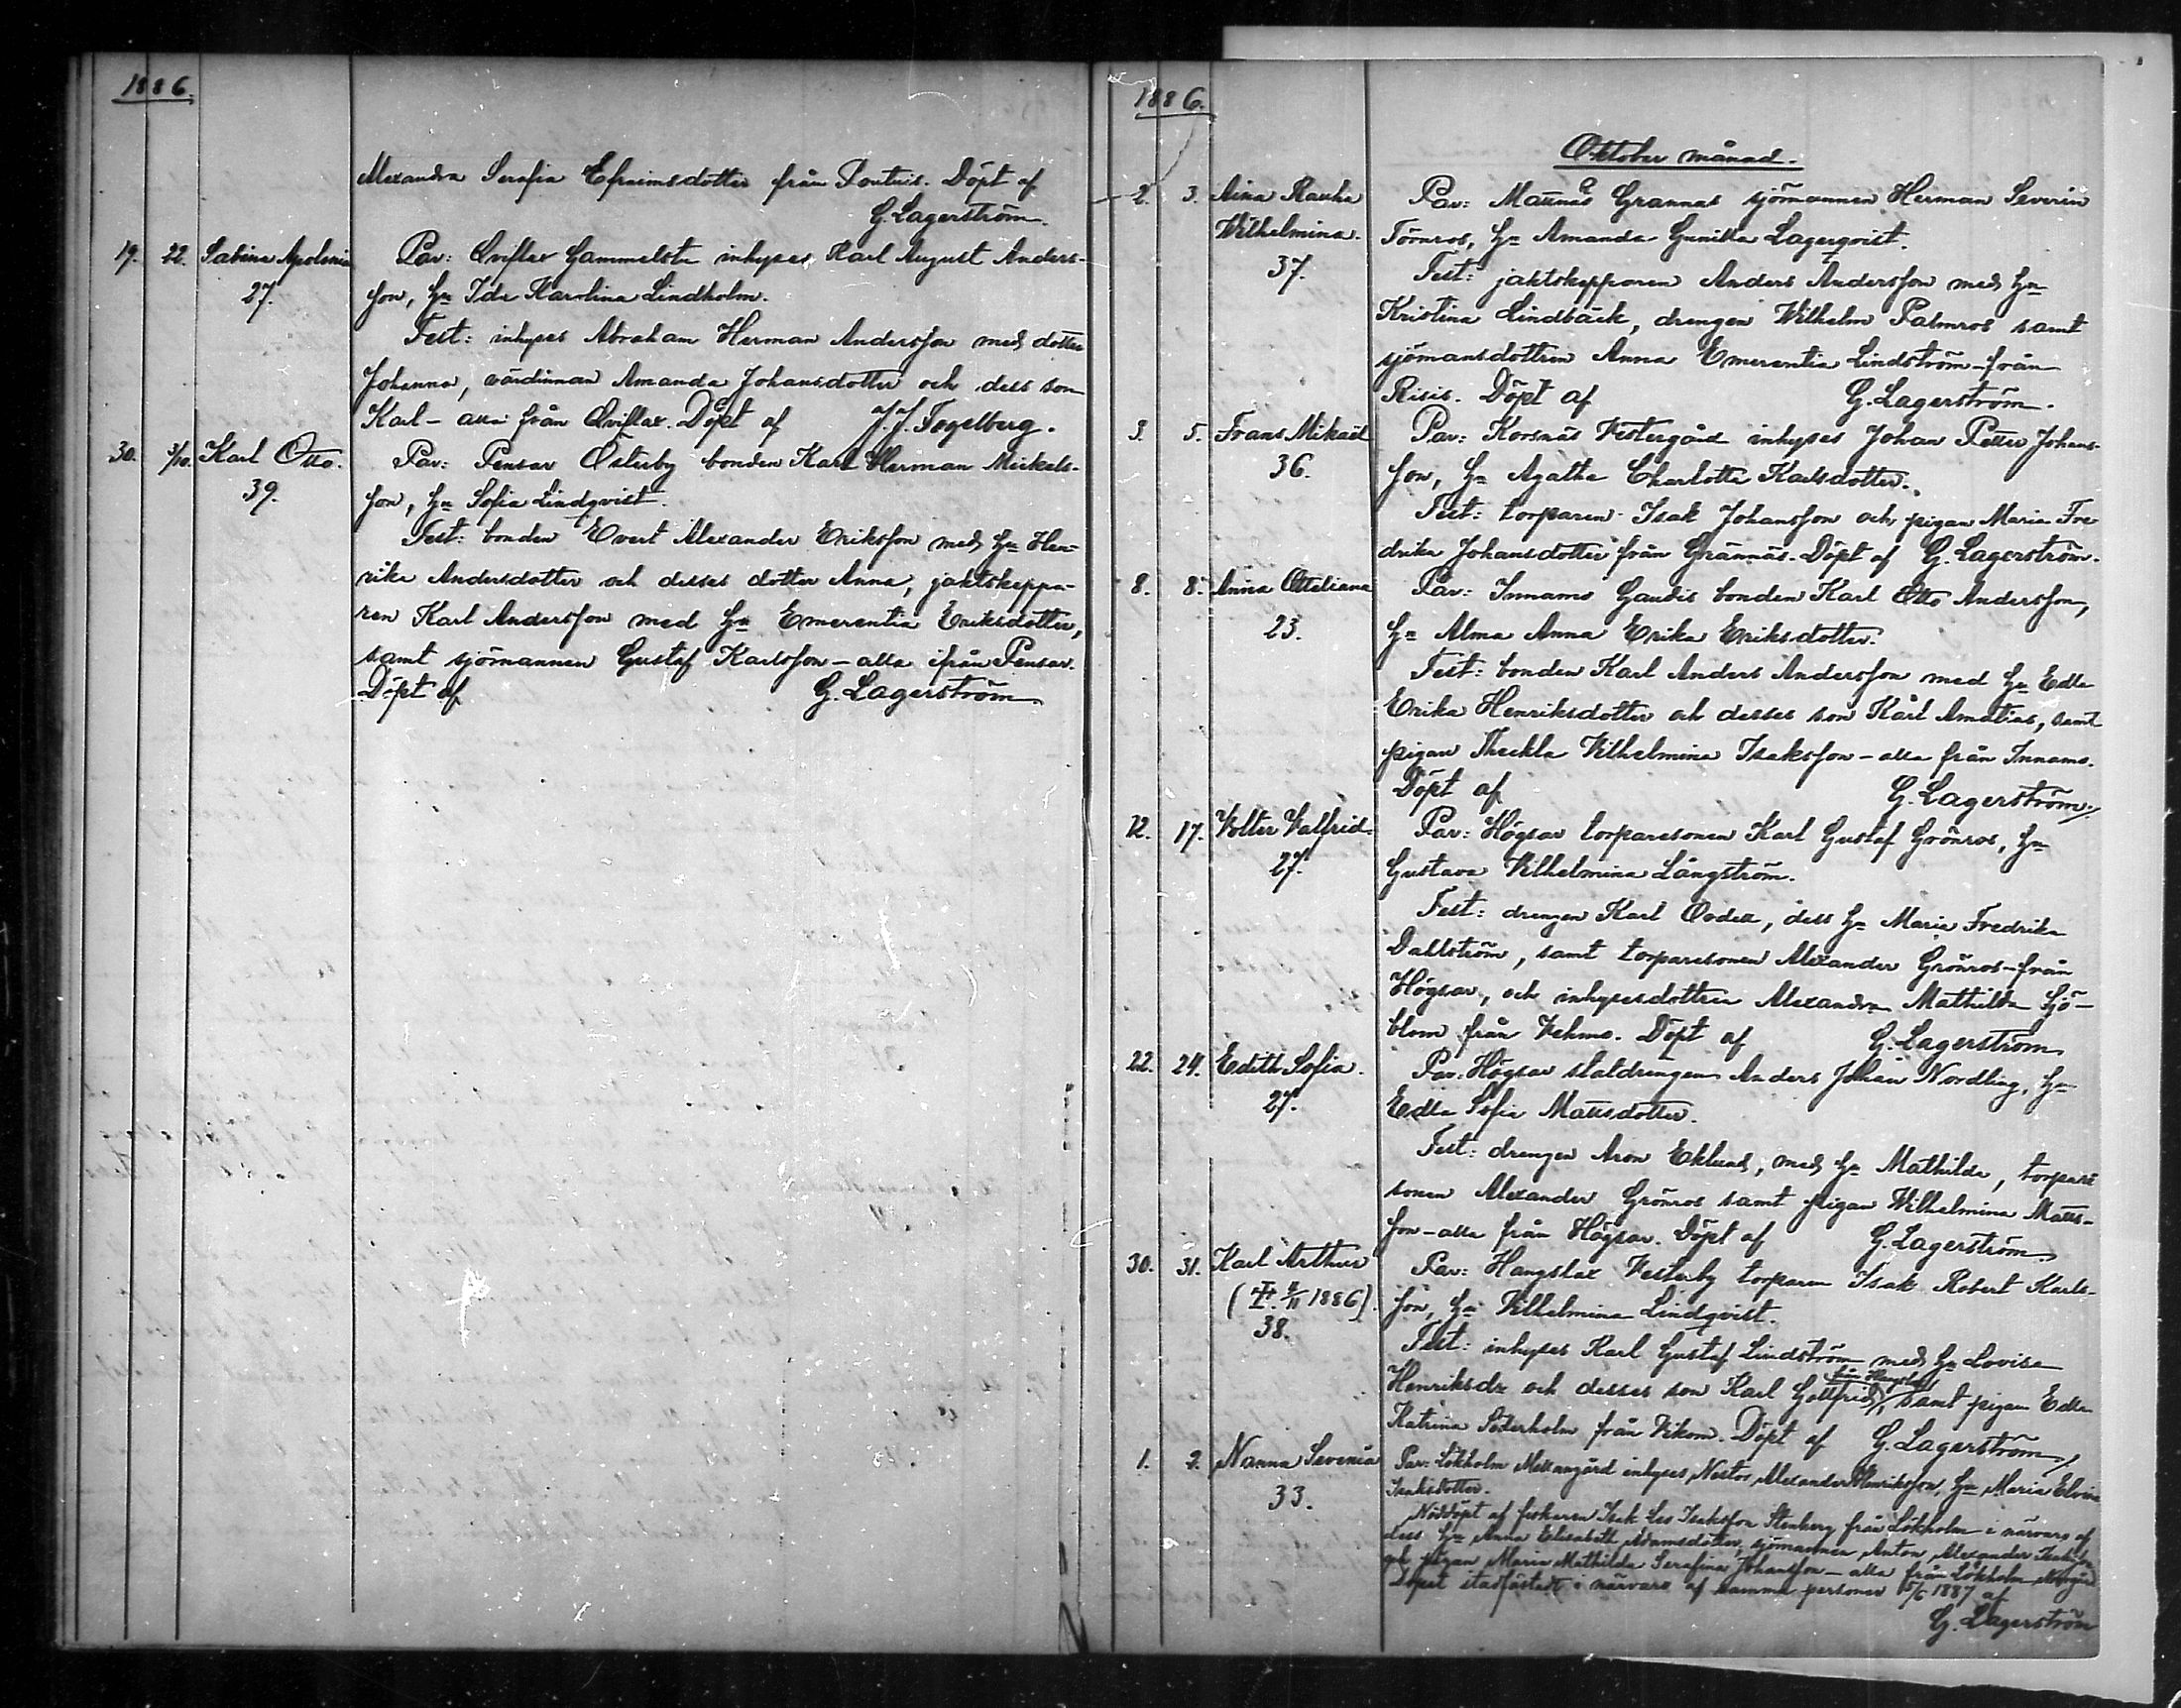 1886.
Alexandra Serafia Efraimsdotter från Pontuis. Döpt af
G. Lagerström.
19. 22. Sabina Apolonia Par: Qviflax Gammelsta inhyses Karl August Anders-
27. son, Hu Ida Karolina Lindholm.
Test: inhyses Abraham Herman Andersson med dotter
Johanna, värdinnan Amanda Johansdotter och dess son
Karl – alla från Qviflax. Döpt af J. J. Fogelberg.
30. 3/10. Karl Otto. Par: Pensar Österby bonden Karl Herman Mickels-
39. son, Hu Sofia Lindqvist.
Test: bonden Evert Alexander Eriksson med Hu Hen-
rika Andersdotter och desses dotter Anna, jaktskeppa-
ren Karl Andersson med Hu Emerentia Eriksdotter,
samt sjömannen Gustaf Karlsson – alla ifrån Pensar.
Döpt af G. Lagerström
1886.
Oktober månad.
2. 3. Aina Rauha Par: Mattnäs Grannas sjömannen Herman Severin
Wilhelmina. Törnros, Hu Amanda Gunilla Lagerqvist.
37. Test: jaktskepparen Anders Andersson med Hu
Kristina Lindbäck, drengen Wilhelm Palmros samt
sjömansdottren Anna Emerentia Lindström – från
Risis. Döpt af G. Lagerström.
3. 5. Frans Mikael Par: Korsnäs Vestergård inhyses Johan Petter Johans-
36. son, Hu Agatha Charlotta Karlsdotter.
Test: torparen Isak Johansson och pigan Maria Fre-
drika Johansdotter från Grännäs. Döpt af G. Lagerström.
8. 8. Anna Otteliana Par: Innamo Gandis bonden Karl Otto Andersson,
23. Hu Alma Anna Erika Eriksdotter.
Test: bonden Karl Anders Andersson med Hu Edla
Erika Henriksdotter och desses son Karl Amatias, samt
pigan Theckla Vilhelmina Isaksson – alla från Innamo.
Döpt af G. Lagerström.
12. 17. Volter Valfrid. Par: Högsar torparesonen Karl Gustaf Grönros, Hu
27. Gustava Vilhelmina Långström.
Test: drengen Karl Qvdell, dess Hu Maria Fredrika
Dahlström, samt torparesonen Alexander Grönros – från
Högsar, och inhysesdottren Alexandra Mathilda Sjö-
blom från Vehmo. Döpt af G. Lagerström
22. 24. Edith Sofia. Par: Högsar statdrengen Anders Johan Nordling, Hu
27. Edla Sofia Mattsdotter.
Test: drengen Aron Eklund, med Hu Mathilda, torpare-
sonen Alexander Grönros samt pigan Wilhelmina Matts-
son – alla från Högsar. Döpt af G. Lagerström
30. 31. Karl Arthur Par: Hangslax Vesterby torparen Isak Robert Karls-
1886). son, Hu Vilhelmina Lindqvist.
38.
Test: inhyses Karl Gustaf Lindström med Hu Lovisa
från Hangslax
Henriksdr och desses son Karl Gottfrid, samt pigan Edla
Katrina Söderholm från Vikom. Döpt af G. Lagerström
1. 2. Nanna Severia Par: Lökholm Mellangård inhyses Nestor Alexander Henriksson, Hu Maria Elvira
33. Isaksdotter.
Nöddöpt af fiskaren Isak Isaksson Stenberg från Lökholm i närvaro af
dess Hu Anna Elisabeth Adamsdotter, sjömannen Anton Alexander
och pigan Maria Mathilda Serafina Johansson – alla från Lökholm Norrgård
Dopet stadfästadt i närvaro af samma personer 5/6 1887 af
G. Lagerström